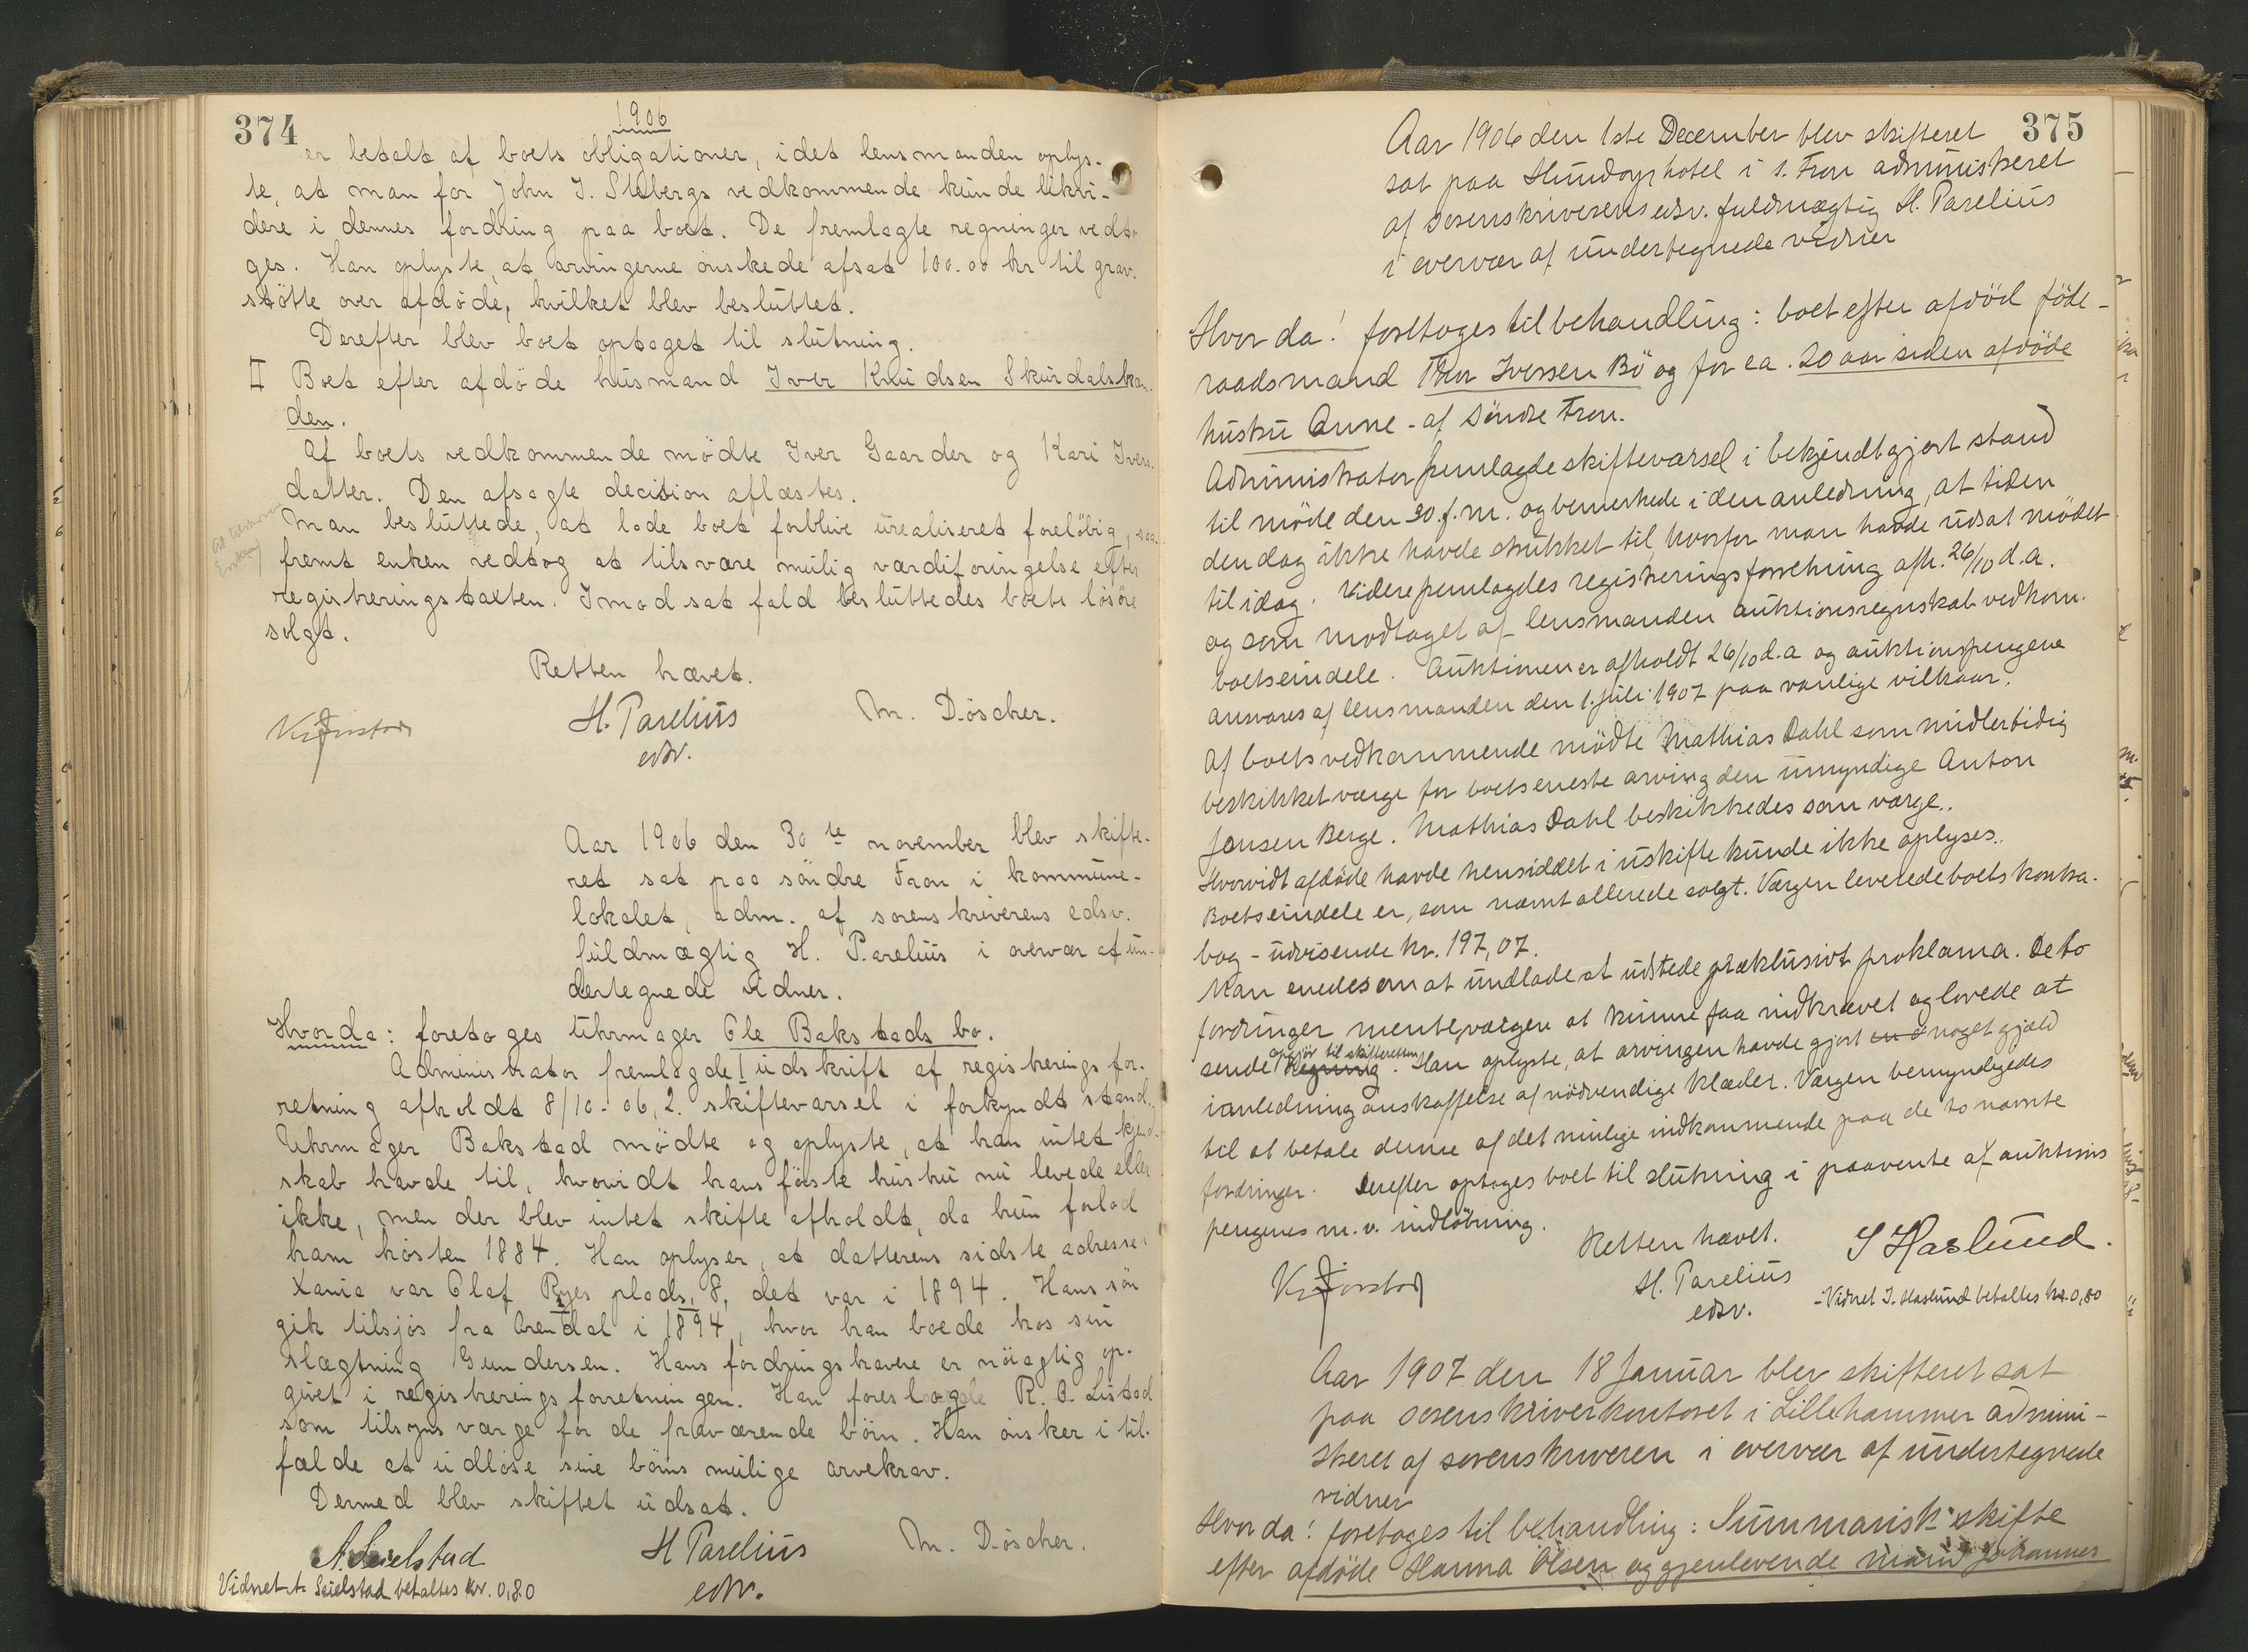 374
1906
er betalt af boets obligationer, idet lensmanden oplys-
te, at man for John J. Stebergs vedkommende kunde likvi-
dere i dennes fordring paa boet. De fremlagte regninger vedto
ges. Han oplyste, at arvingerne önskede afsat 100.00 kr til grav-
stötte over afdöde, hvilket blev besluttet.
Derefter blev boet optaget til slutning.
II Boet efter afdöde husmand Iver Knudsen Skurdalshau-
den.
Af boets vedkommende mödte Iver Gaarder og Kari Ivers-
datter. Den afsagte decision aflæstes.
Man besluttede, at lade boet forblive urealiseret forelöbig, saa
fremt enken vedtog at tilsvare mulig værdiforringelse efter
registreringstakten. I modsat fald besluttedes boets lösöre
solgt.
Retten hævet.
H. Parelius
edsv.
M. Döscher.
Aar 1906 den 30te november blev skifte-
ret sat paa söndre Fron i kommune-
lokalet, adm. af sorenskriverens edsv.
fuldmægtig H. Parelius i overvær af un-
dertegnede vidner.
Hvorda: foretoges uhrmager Ole Bakstads bo.
Administrator fremlagde 1 udskrift af registrerings for-
retning afholdt 8/10-06, 2. skiftevarsel i forkyndt stand.
Uhrmager Bakstad mödte og oplyste, at han intet kjend-
skab havde til, hvorvidt hans förste hustru nu levede eller
ikke, men der blev intet skifte afholdt, da hun forlod
ham hösten 1884. Han oplyser, at datterens sidste adresse i
Xania var Olaf Ryes plads, 8, det var i 1894. Hans sön
gik tilsjös fra Arendal i 1894, hvor han boede hos sin
slægtning Gundersen. Hans fordringshavere er nöiagtig op-
givet i registreringsforretningen. Han foreslog R. O. Listad
som tilsynsværge for de fraværende börn. Han önsker i til-
fælde at udlöse sine börns mulige arvekrav.
Dermed blev skiftet udsat.
A. Seielstad
H Parelius
edsv.
M. Döscher.
Vidnet A. Seielstad betaltes kr. 0,80
375
Aar 1906 den 1ste December blev skifteret
sat paa Hundorp hotel i s. Fron administreret
af sorenskriverens edsv. fuldmægtig H. Parelius
i overvær af undertegnede vidner
Hvor da! foretoges til behandling: boet efter afdöd föde-
raadsmand Thor Iverssen Bö og for ca. 20 aar siden afdöde
hustru Anne - af Söndre Fron.
Administrator fremlagde skiftevarsel i bekjendtgjort stand
til möde den 30. f.m. og bemerkede i den anledning, at tiden
den dag ikke havde strukket til, hvorfor man havde udsat mödet
til idag. Videre fremlagdes registreringsforretning afh. 26/10 d.a.
og som modtaget af lensmanden auktionsregnskab vedkom.
boets eindele. Auktionen er afholdt 26/10 d.a og auktionspengene
ansvares af lensmanden den 1. juli 1907 paa vanlige vilkaar.
Af boets vedkommende mödte Mathias Dahl som midlertidig
beskikket værge for boets eneste arving den umyndige Anton
Jonsen Berge. Mathias Dahl beskikkedes som værge.
Hvorvidt afdöde havde hensiddet i uskifte kunde ikke oplyses.
Boets eindele er, som nævnt allerede solgt. Værgen leverede boets kontra-
bog - udvisende kr. 197,07.
Man enedes om at undlade at udstede præklusivt proklama. De to
fordringer mente værgen at kunne faa indkrævet og lovede at
sende opgjör til skifteretten. Han oplyste, at arvingen havde gjort noget gjæld
i anledning anskaffelse af nödvendige klæder. Værgen bemyndigedes
til at betale denne af det mulige indkommende paa de to nævnte
fordringer. Derefter optoges boet til slutning i paavente af auktions
pengenes m.v. indlöbning.
Retten hævet.
H. Parelius
edsv.
S Haslund.
- Vidnet S. Haslund betaltes kr. 0,80
Aar 1907 den 18 Januar blev skifteret sat
paa sorenskriverkontoret i Lillehammer admini-
streret af sorenskriveren i overvær af undertegnede
vidner
Hvor da! foretoges til behandling: Summarisk skifte
efter afdöde Hanna Olsen og gjenlevende mand Johannes